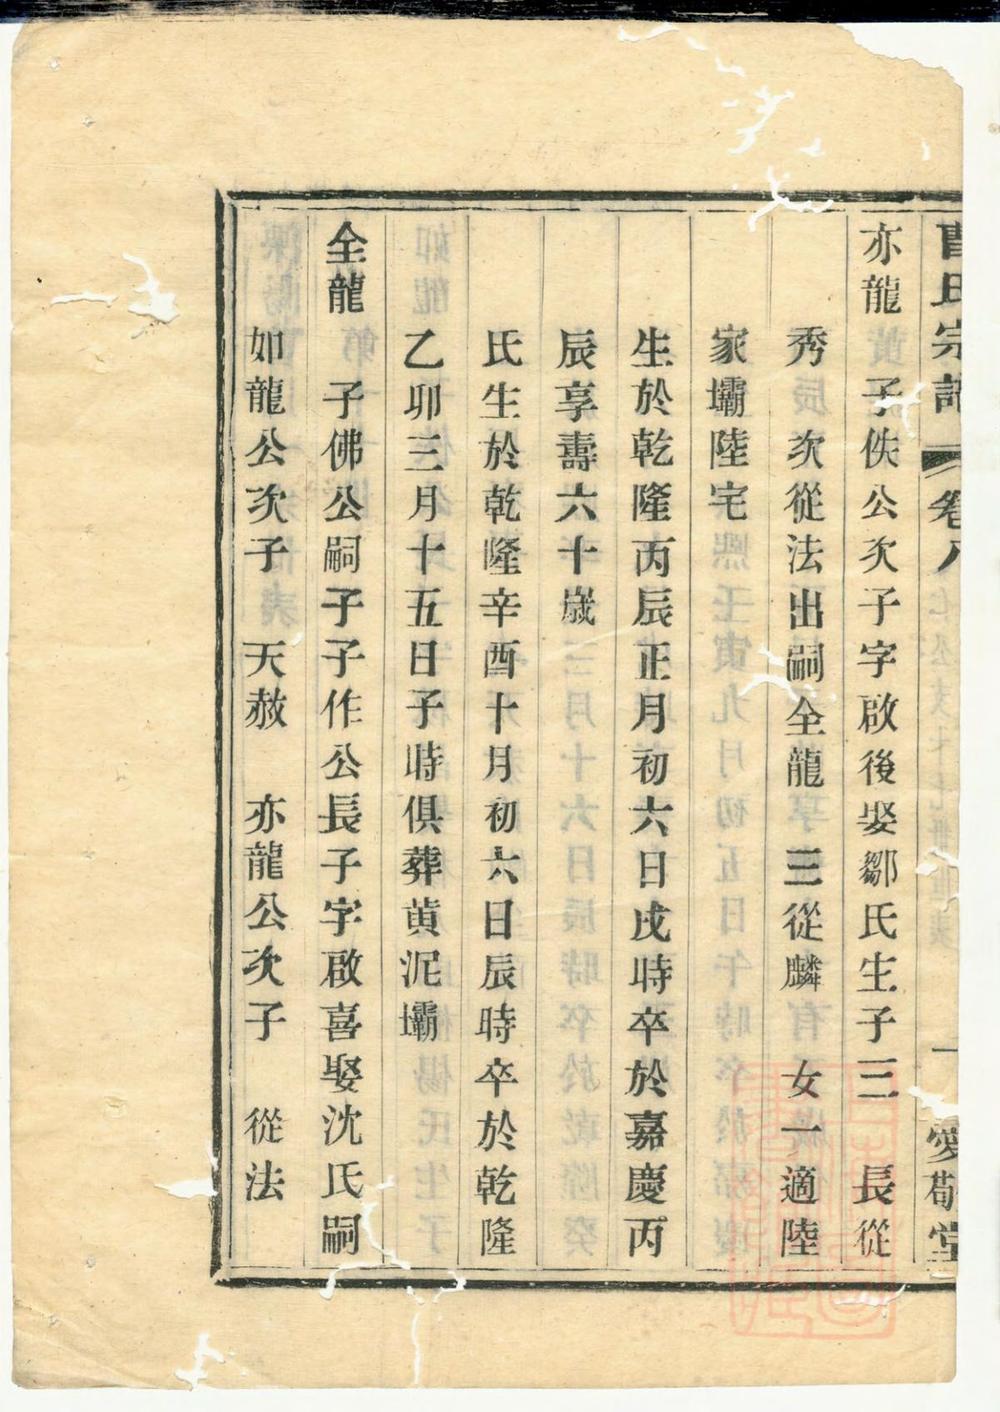 曹氏宗譜 卷八 一 愛敬堂
亦龍 子佚公次子字啟後娶鄒氏生子三 長從
秀 次從法出嗣全龍 三從麟 女一適陸
家壩陸宅
生於乾隆丙辰正月初六日戌時卒於嘉慶丙
辰享壽六十歲
氏生於乾隆辛酉十月初六日辰時卒於乾隆
乙卯三月十五日子時俱葬黄泥壩
全龍 子佛公嗣子子作公長子字啟喜娶沈氏嗣
如龍公次子 天赦 亦龍公次子 從法